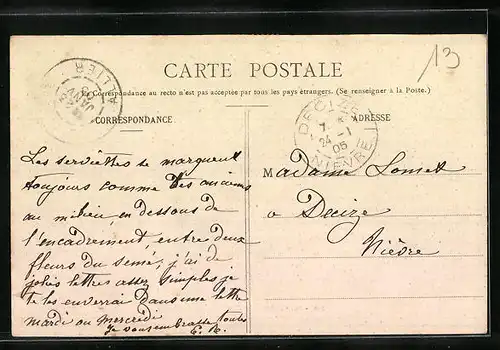 13
CARTE POSTALE
La Correspondance au recto n'est pas acceptée par tous les pays étrangers. (Se renseigner à la Poste.)
CORRESPONDANCE
ADRESSE
ALLIER
JANV
05
DECIZE
24 - 1
05
NIEVRE
Les serviettes se marquent
toujours comme les anciens
au milieu, en dessous de
l'encadrement, entre deux
fleurs du semé, j'ai de
jolies lettres assez simples je
te les enverrai dans une lettre
mardi ou mercredi
Je vous embrasse toutes
E. R.
Madame Lomet
à Decize
Nièvre